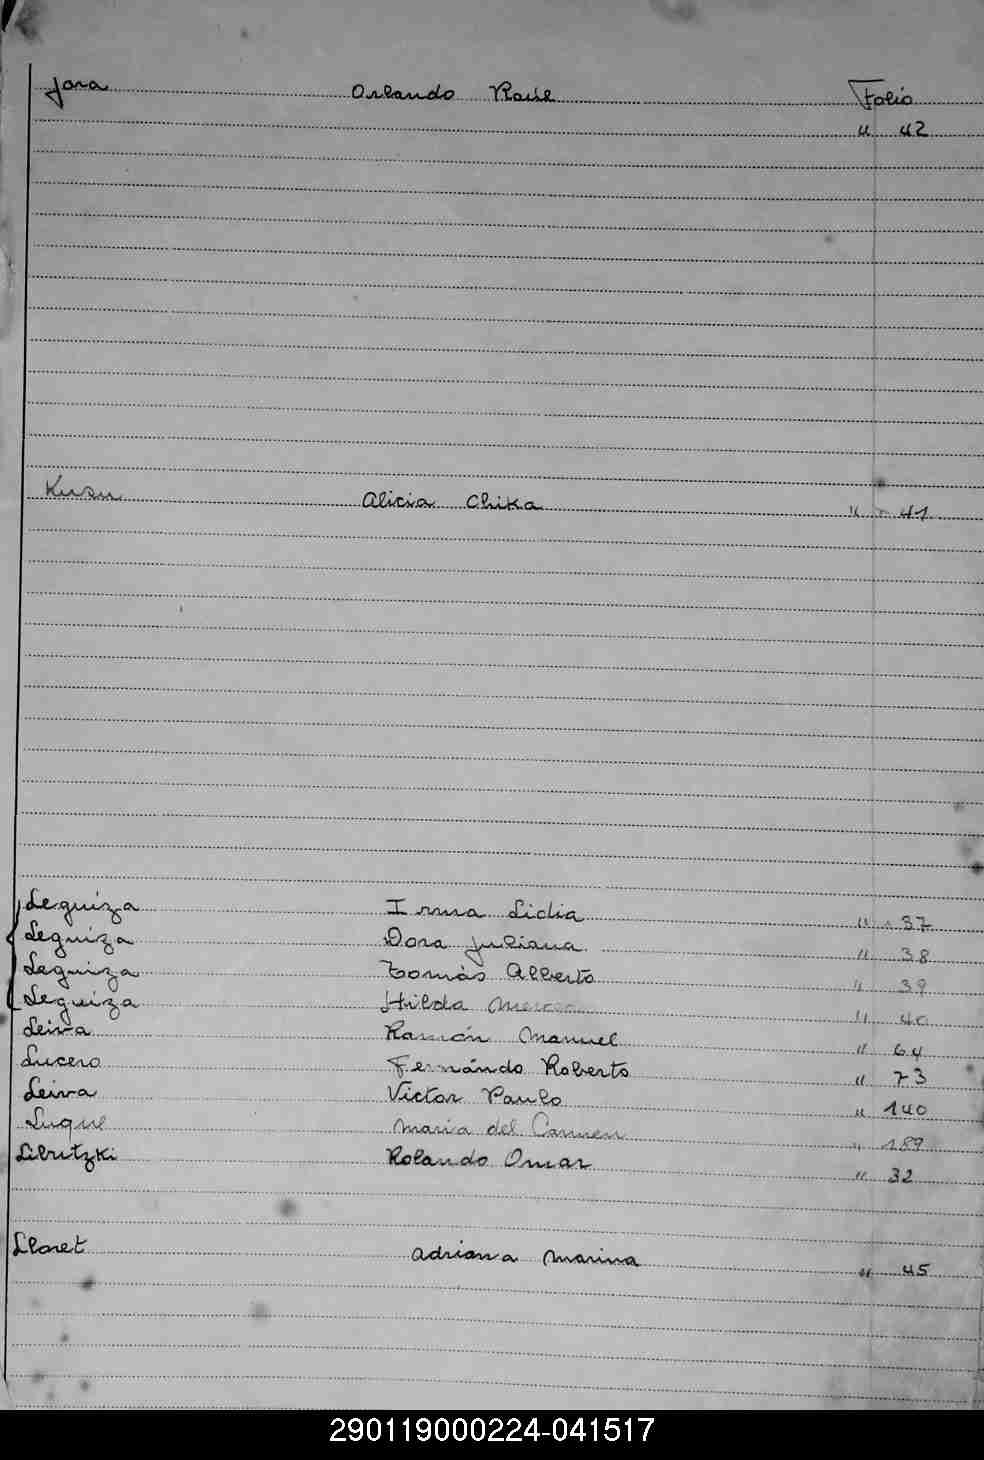 Jara Orlando Raúl Folio
" 42
Kusu Alicia Chika " 41
Leguiza Irma Lidia " 37
Leguiza Dora Juliana " 38
Leguiza Tomás Alberto " 39
Leguiza Hilda " 40
Leiva Ramón Manuel " 64
Lucero Fernándo Roberto " 73
Leiva Victor Paulo " 140
Luque Maria del Carmen " 189
Libutzki Rolando Omar " 32
Lloret Adriana Marina " 45
290119000224-041517